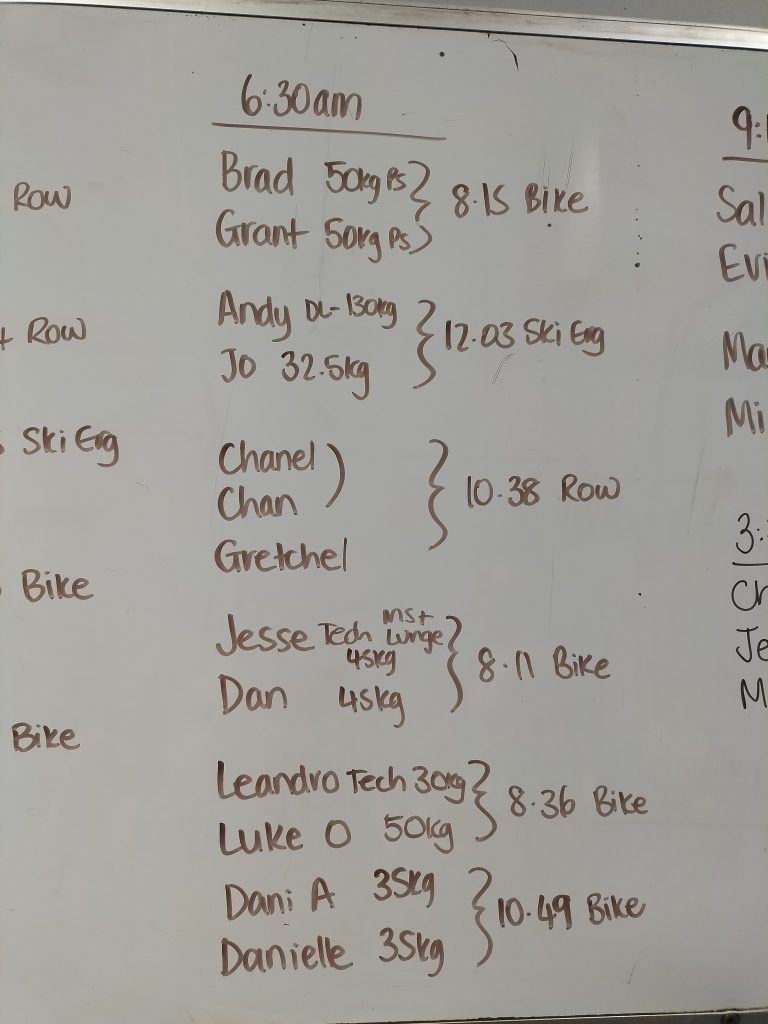 Row
Row
Ski Erg
Bike
Bike
6:30am
Brad 50kg PS
Grant 50kg PS
8.15 Bike
Andy DL-130kg
Jo 32.5kg
12.03 Ski Erg
Chanel
Chan
Gretchel
10.38 Row
Jesse Tech MS+ Lunge
45kg
Dan 45kg
8.11 Bike
Leandro Tech 30kg
Luke O 50kg
8.36 Bike
Dani A 35kg
Danielle 35kg
10.49 Bike
9:
Sal
Evi
Ma
Mi
3:
Ch
Je
M